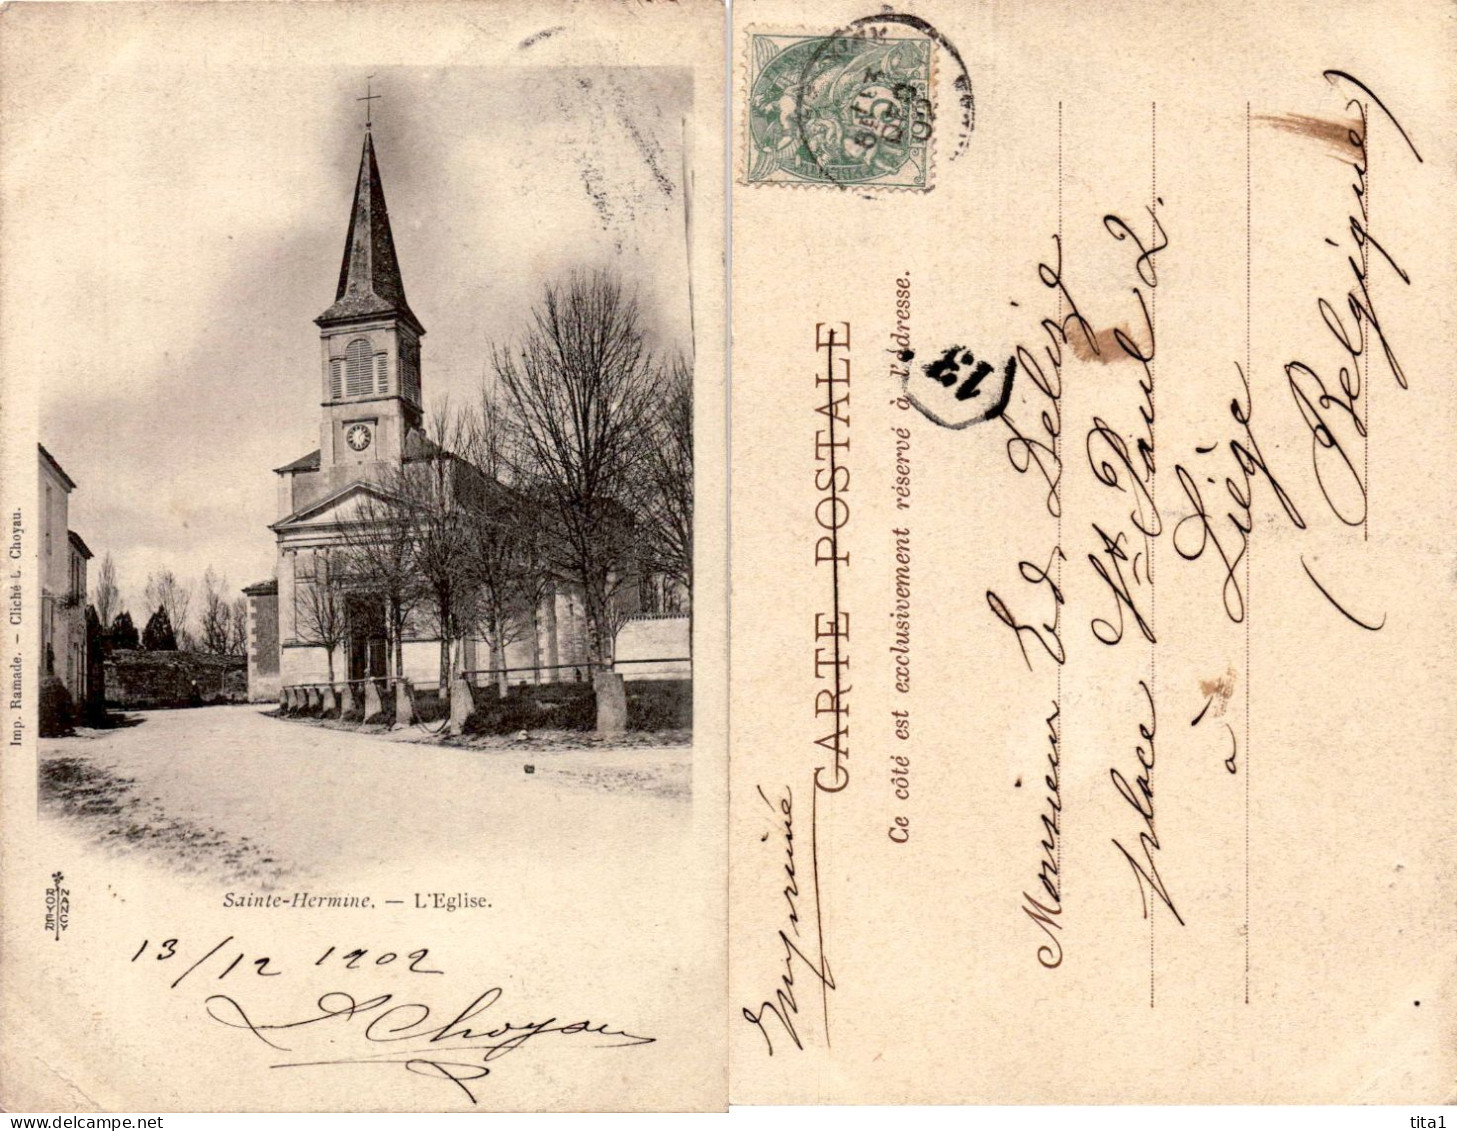 Imp. Ramade. — Cliché L. Choyau.
ROYER
NANCY
Sainte-Hermine. — L'Eglise.
13/12 1902
L Choyau
CARTE POSTALE
Ce côté est exclusivement réservé à l'adresse.
Imprimé
13
Monsieur Ed. Deluz
place St Paul 2.
à Liège
(Belgique)
tita1